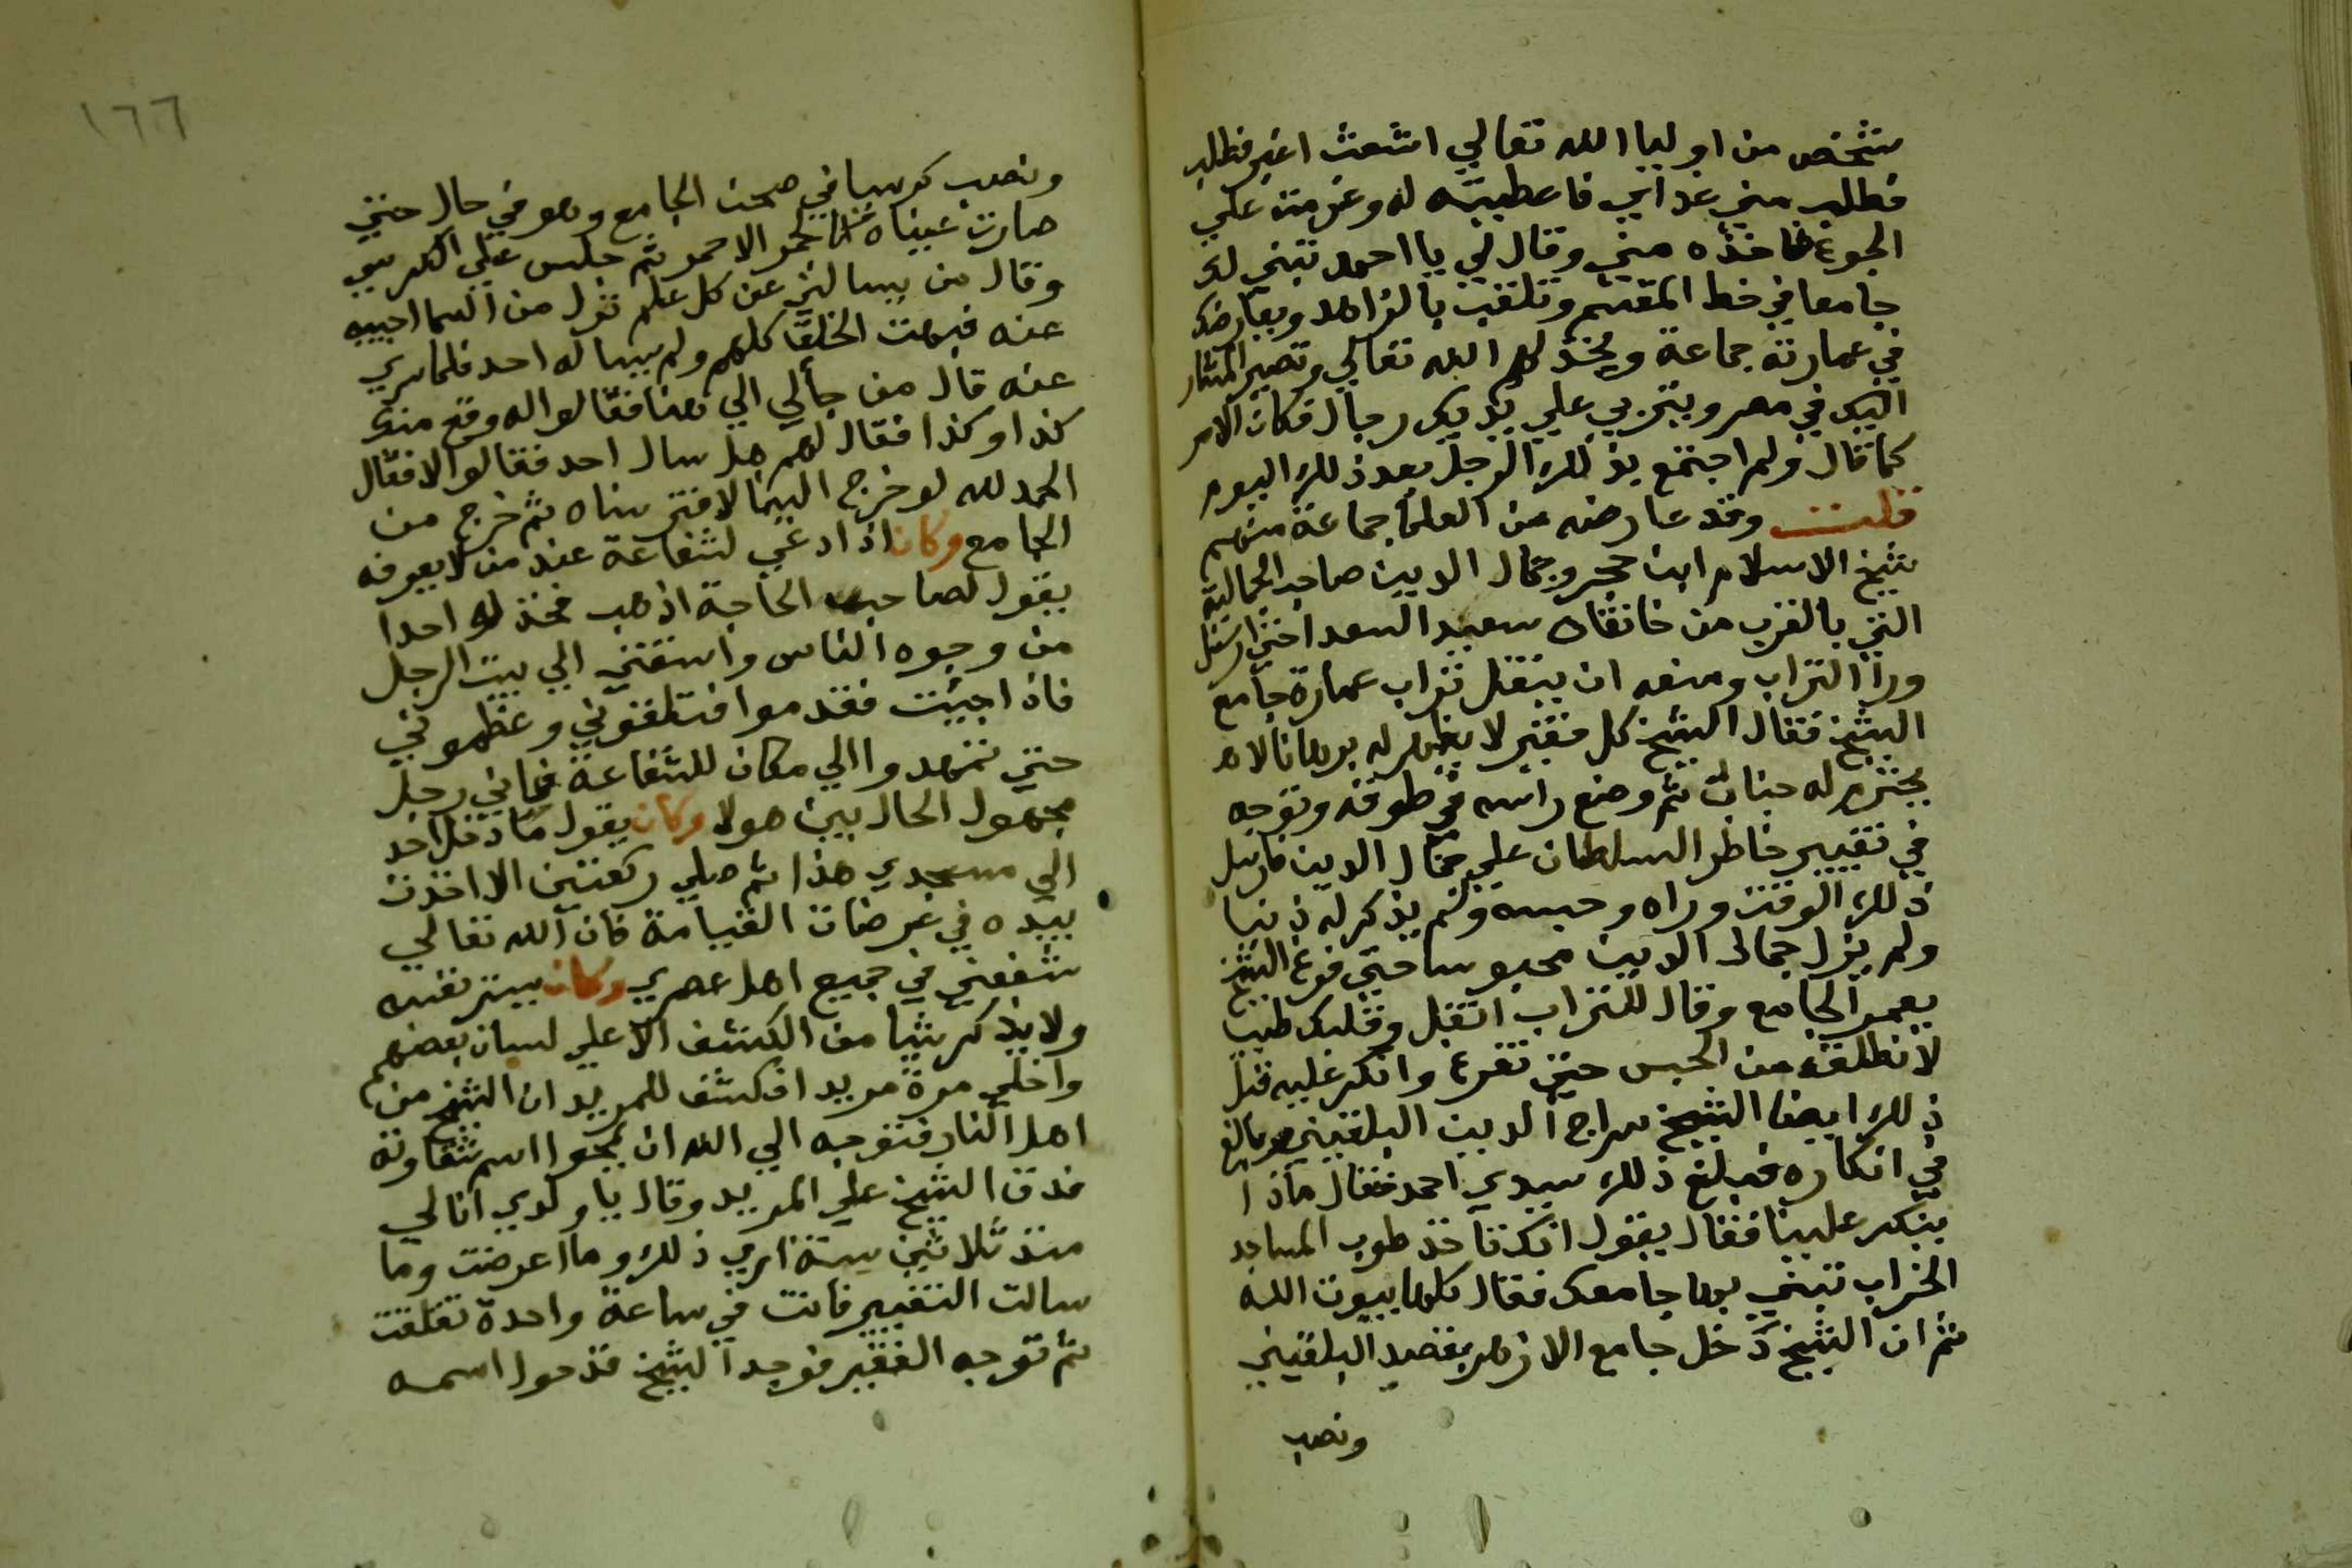 شخص من اوليا الله تعالي اشعث اغبر فطلب
فطلب مني غداي فاعطيته له وعزمت علي
الجوع فاخذه مني وقال لي يا احمد تبني لك
جامعا في خط المقسم وتلقب بالزاهد ويعارضك
في عمارته جماعة ويخذلهم الله تعالي وتصير المشار
اليك في مصر ويتربي علي يديك رجال فكان الامر
كما قال ولم اجتمع بذلك الرجل بعد ذلك اليوم
قلت وقد عارضه من العلما جماعة منهم
شيخ الاسلام ابن حجر وجمال الدين صاحب الجمالية
التي بالقرب من خانقاه سعيد السعدا حتي ارسل
ورا التراب ومنعه ان ينقل تراب عمارة جامع
الشيخ فقال الشيخ كل فقير لا يظهر له برهانا لا
يحترم له جناب ثم وضع راسه في طوقه وتوجه
في تغيير خاطر السلطان علي جمال الدين فارسل
ذلك الوقت وراه وحبسه ولم يذكر له ذنبا
ولم يزل جمال الدين محبوسا حتي فرغ الشيخ
يعمر الجامع وقال للتراب انقل وقلبك طيب
لا نطلقه من الحبس حتي تفرغ وانكر عليه قبل
ذلك ايضا الشيخ سراج الدين البلقيني وبالغ
في انكاره فبلغ ذلك سيدي احمد فقال ماذا
ينكر علينا فقال يقول انك تاخذ طوب المساجد
الخراب تبني بها جامعك فقال كلها بيوت الله
ثم ان الشيخ دخل جامع الازهر بقصد البلقيني
ونصب
١٦٦
ونصب كرسيا في صحن الجامع وهو في حال حتي
صارت عيناه كالجمر الاحمر ثم جلس علي الكرسي
وقال من يسالني عن كل علم نزل من السما اجيبه
عنه فبهت الخلق كلهم ولم يساله احد فلما سري
عنه قال من جابي الي هنا فقالوا له وقع منك
كذا وكذا فقال لهم هل سال احد فقالوا لا فقال
الحمد لله لو خرج الينا لافترسناه ثم خرج من
الجامع وكان اذا دعي لشفاعة عند من لا يعرفه
يقول لصاحب الحاجة اذهب فخذ لك احدا
من وجوه الناس واسبقني الي بيت الرجل
فاذا جيت فقدموا فتلقوني وعظموني
حتي تمهدوا الي مكان للشفاعة فاني رجل
مجهول الحال بين هولا وكان يقول ما دخل احد
الي مسجدي هذا ثم صلي ركعتين الا اخذت
بيده في عرضات القيامة فان الله تعالي
شفعني في جميع اهل عصري وكان يستر نفسه
ولا يذكر شيا من الكشف الا علي لسان بعضهم
واخلي مرة مريدا فكشف للمريد ان الشيخ من
اهل النار فتوجه الي الله ان يمحوا اسم شقاوته
فدق الشيخ علي المريد وقال يا ولدي انا لي
منذ ثلاثين سنة اري ذلك وما اعرضت وما
سالت التغيير فانت في ساعة واحدة تقلقت
ثم توجه الفقير فوجد الشيخ قد حول اسمه